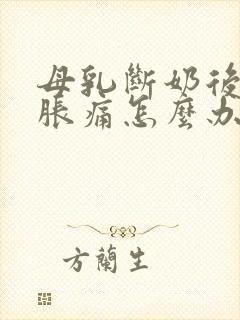 母乳斷奶後
脹痛怎麼办
方蘭生